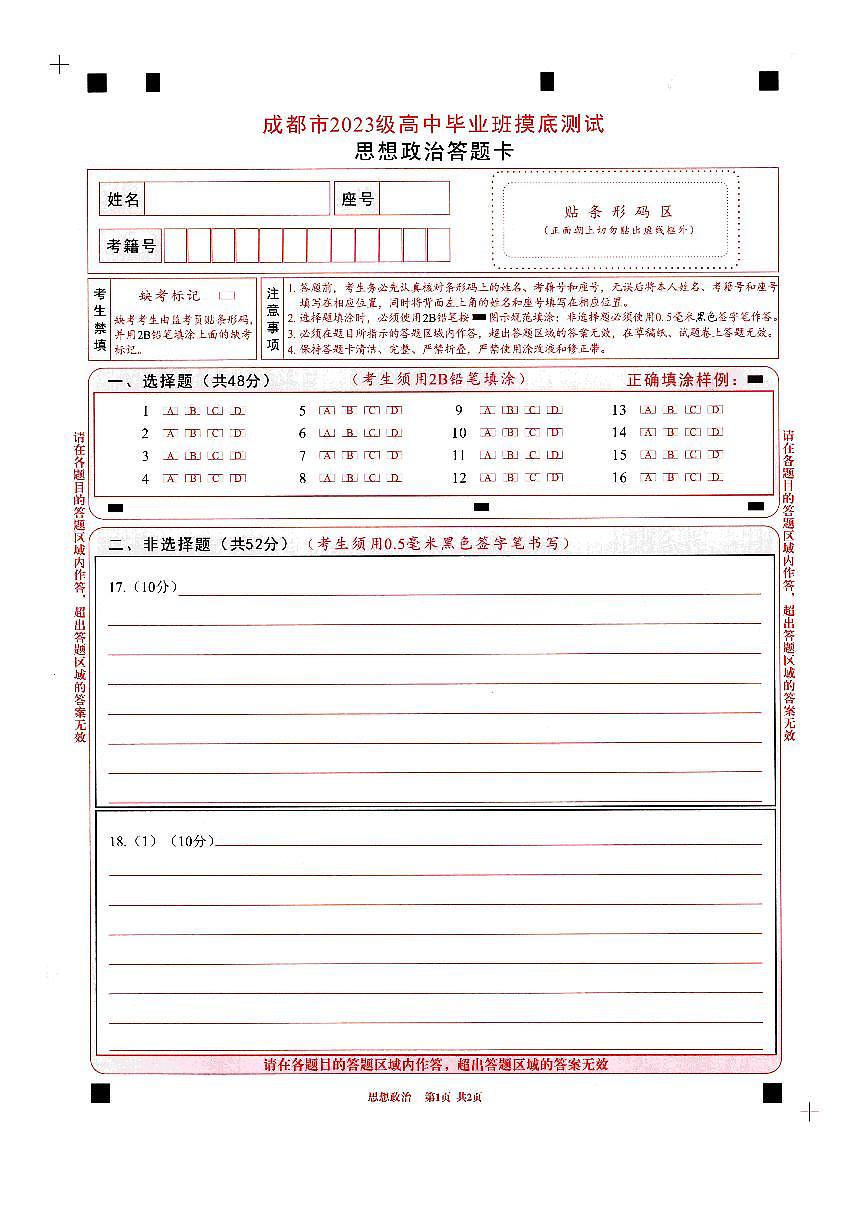 成都市2023级高中毕业班摸底测试
思想政治答题卡
姓名
座号
考籍号
贴条形码区
(正面朝上切勿贴出虚线框外)
考生禁填
缺考标记
缺考考生由监考员贴条形码,
并用2B铅笔填涂上面的缺考
标记。
注意事项
1. 答题前,考生务必先认真核对条形码上的姓名、考籍号和座号,无误后将本人姓名、考籍号和座号
填写在相应位置,同时将背面左上角的姓名和座号填写在相应位置。
2. 选择题填涂时,必须使用2B铅笔按 图示规范填涂;非选择题必须使用0.5毫米黑色签字笔作答。
3. 必须在题目所指示的答题区域内作答,超出答题区域的答案无效,在草稿纸、试题卷上答题无效。
4. 保持答题卡清洁、完整、严禁折叠,严禁使用涂改液和修正带。
一、选择题(共48分) (考生须用2B铅笔填涂) 正确填涂样例:
1 A B C D 5 A B C D 9 A B C D 13 A B C D
2 A B C D 6 A B C D 10 A B C D 14 A B C D
3 A B C D 7 A B C D 11 A B C D 15 A B C D
4 A B C D 8 A B C D 12 A B C D 16 A B C D
请在各题目的答题区域内作答,超出答题区域的答案无效
请在各题目的答题区域内作答,超出答题区域的答案无效
二、非选择题(共52分)(考生须用0.5毫米黑色签字笔书写)
17.(10分)
18.(1)(10分)
请在各题目的答题区域内作答,超出答题区域的答案无效
思想政治 第1页 共2页